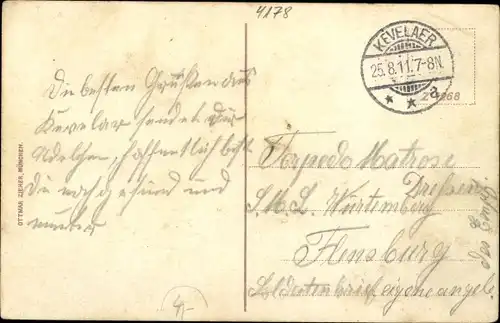 4178
KEVELAER
25.8.11.7-8N.
* * a
24968
Die besten Grüße aus
Kevelar sendet Dir
hoffentlich bist
Du noch gesund und
munter
Torpedo Matrose
S.M.S. Würtemberg
Flensburg
Soldatenbrief, eigene angel.
OTTMAR ZIEHER, MÜNCHEN.
4,-